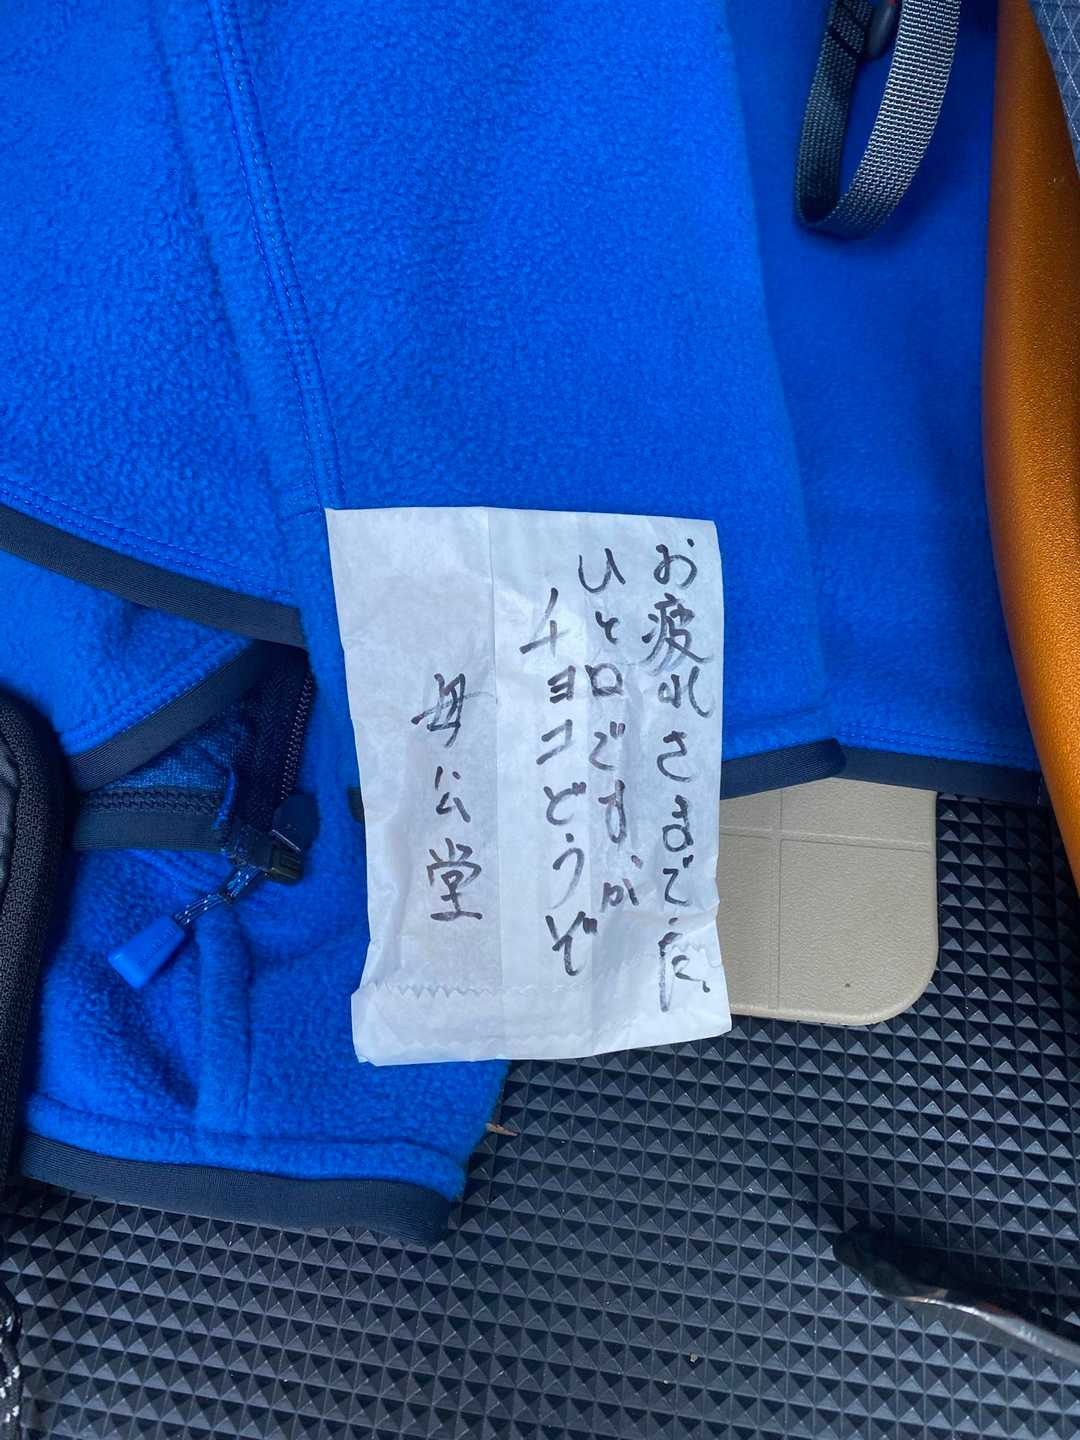 お疲れさまでした。
ひと口ですが
チョコどうぞ
母公堂